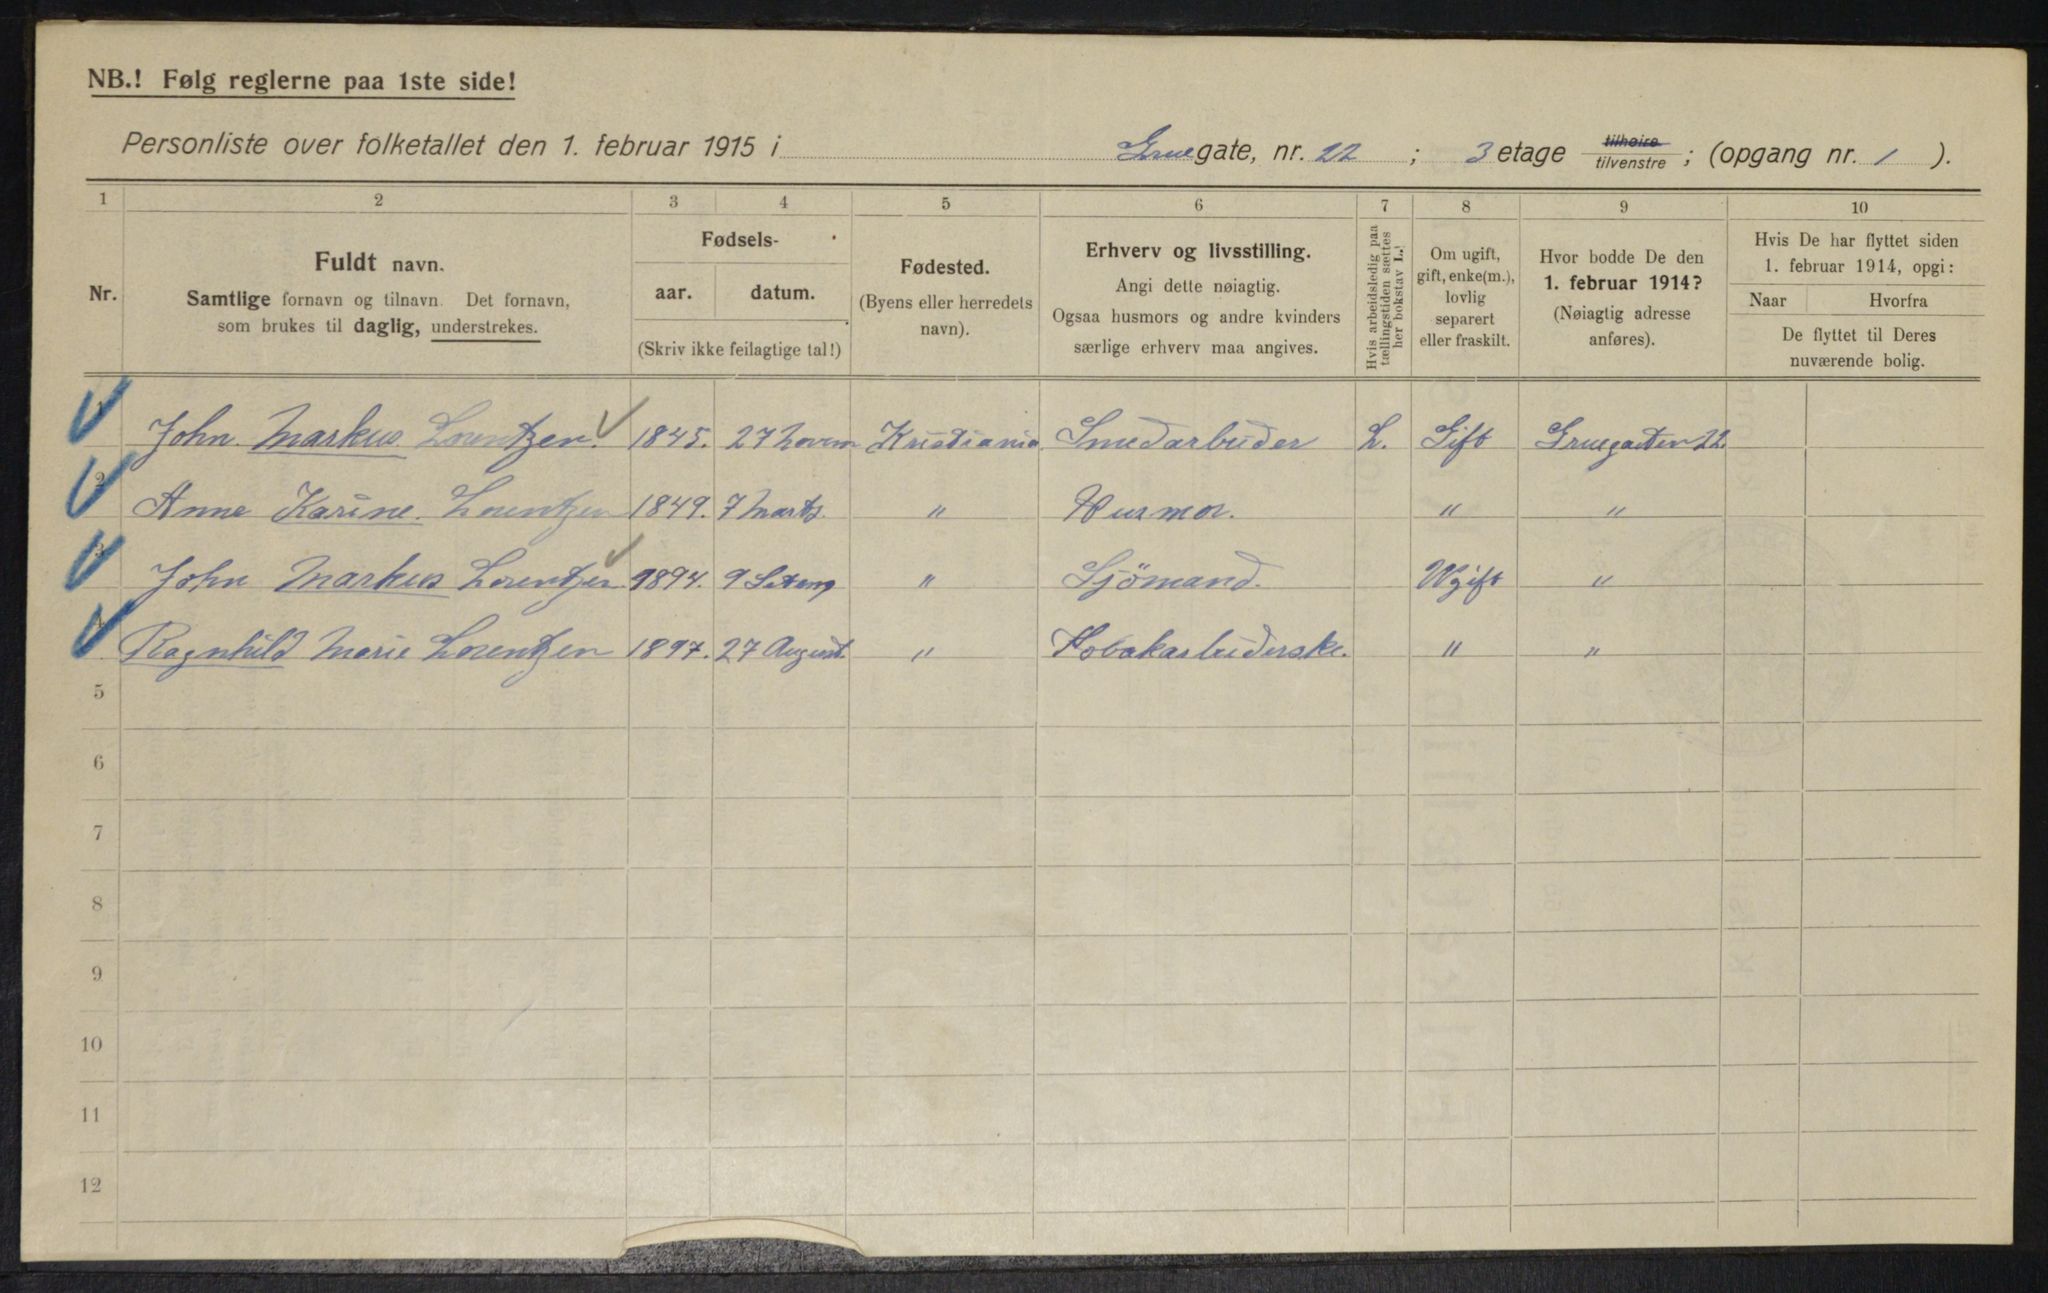 NB.! Følg reglerne paa 1ste side!
Personliste over folketallet den 1. februar 1915 i Gruegate, nr. 22 ; 3 etage tilhøire tilvenstre ; (opgang nr. 1 ).
1 2 3 4 5 6 7 8 9 10
Nr.
Fuldt navn.
Samtlige fornavn og tilnavn. Det fornavn,
som brukes til daglig, understrekes.
Fødsels-
aar. datum.
(Skriv ikke feilagtige tal!)
Fødested.
(Byens eller herredets
navn).
Erhverv og livsstilling.
Angi dette nøiagtig.
Ogsaa husmors og andre kvinders
særlige erhverv maa angives.
Hvis arbeidsledig paa
tællingstiden sættes
her bokstav L.!
Om ugift,
gift, enke(m.),
lovlig
separert
eller fraskilt.
Hvor bodde De den
1. februar 1914?
(Nøiagtig adresse
anføres).
Hvis De har flyttet siden
1. februar 1914, opgi:
Naar Hvorfra
De flyttet til Deres
nuværende bolig.
1 John Markus Lorentzen. 1845. 27 Novem Kristiania. Smedarbeider L. Gift Gruegaten 22.
2 Anne Karine Lorentzen 1849. 7 Marts. " Husmor. " "
3 John Markus Lorentzen 1894. 9 " Sjömand. Ugift "
4 Ragnhild Marie Lorentzen 1897. 27 August. " Tobakarbeiderske. " "
5
6
7
8
9
10
11
12